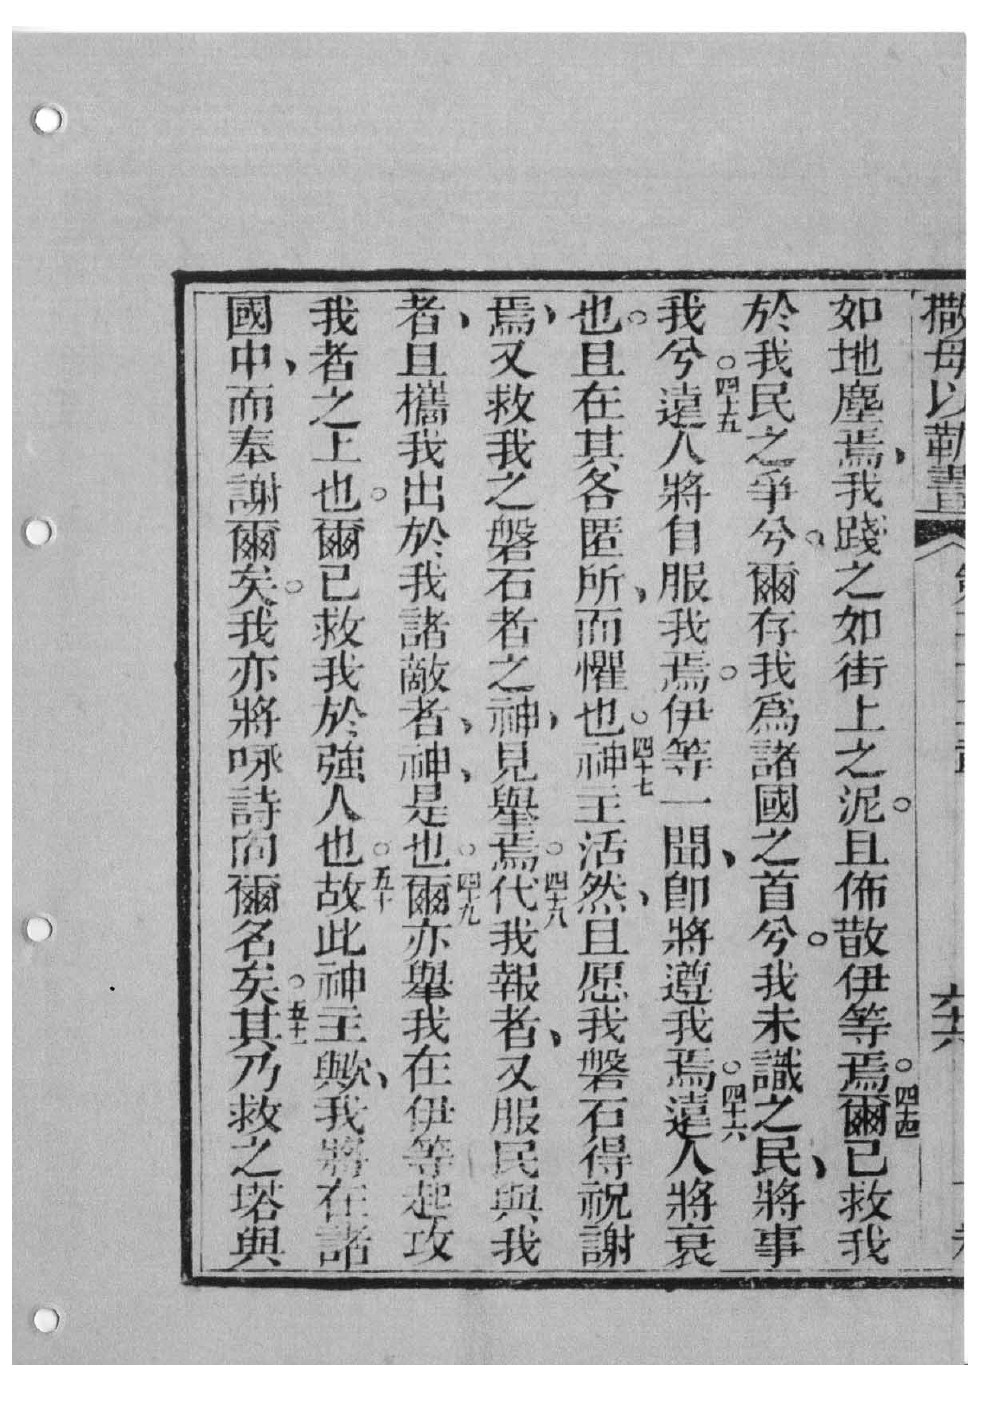 撒母以勒書
六十六
如地塵焉、我踐之如街上之泥。且佈散伊等焉。四十四爾已救我
於我民之爭兮。爾存我爲諸國之首兮。我未識之民、將事
我兮。四十五遠人將自服我焉。伊等一聞、卽將遵我焉。四十六遠人將衰
也。且在其各匿所、而懼也。四十七神主活然、且愿我磐石得祝謝
焉、又救我之磐石者之神、見舉焉。四十八代我報者、又服民與我
者、且攜我出於我諸敵者、神、是也。四十九爾亦舉我在伊等起攻
我者之上也。爾已救我於強人也。五十故此神主歟、我將在諸
國中、而奉謝爾矣。我亦將咏詩向爾名矣。五十一其乃救之塔與